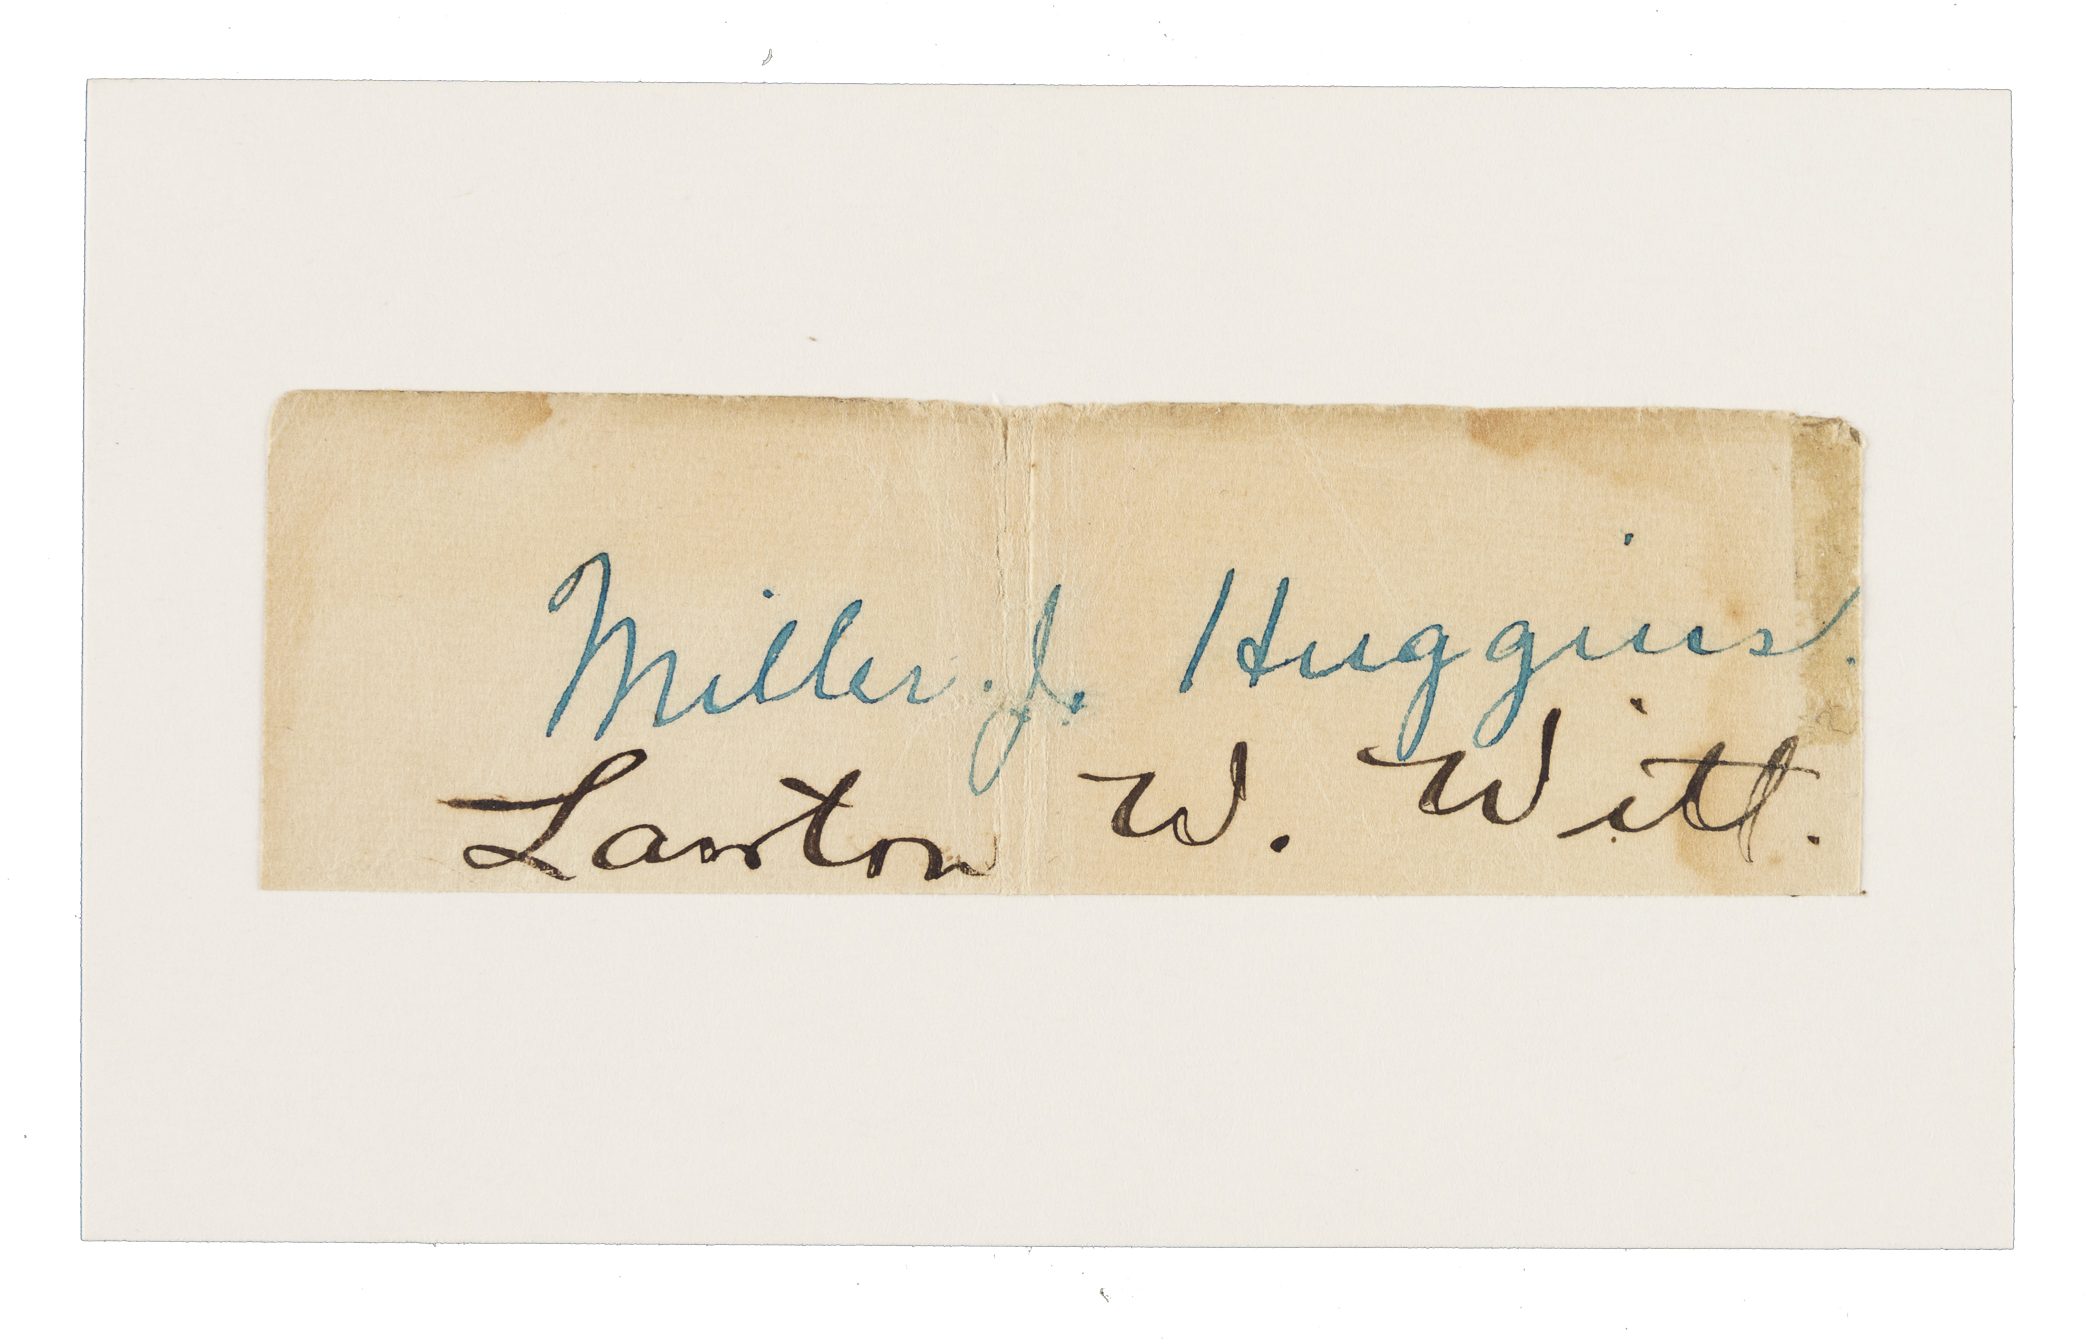 Miller. J. Huggins.
Lawton W. Witt.